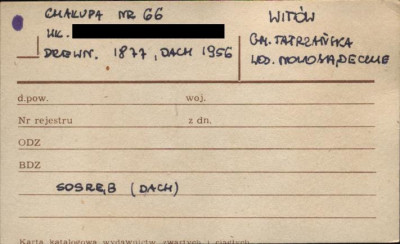 CHAŁUPA NR 66
WŁ.
DREWN. 1877, DACH 1956
WITÓW
GM. TATRZAŃSKA
WOJ. NOWOSĄDECKIE
d.pow. woj.
Nr rejestru z dn.
ODZ
BDZ
SOSRĘB (DACH)
Karta katalogowa wydawnictw zwartych i ciągłych